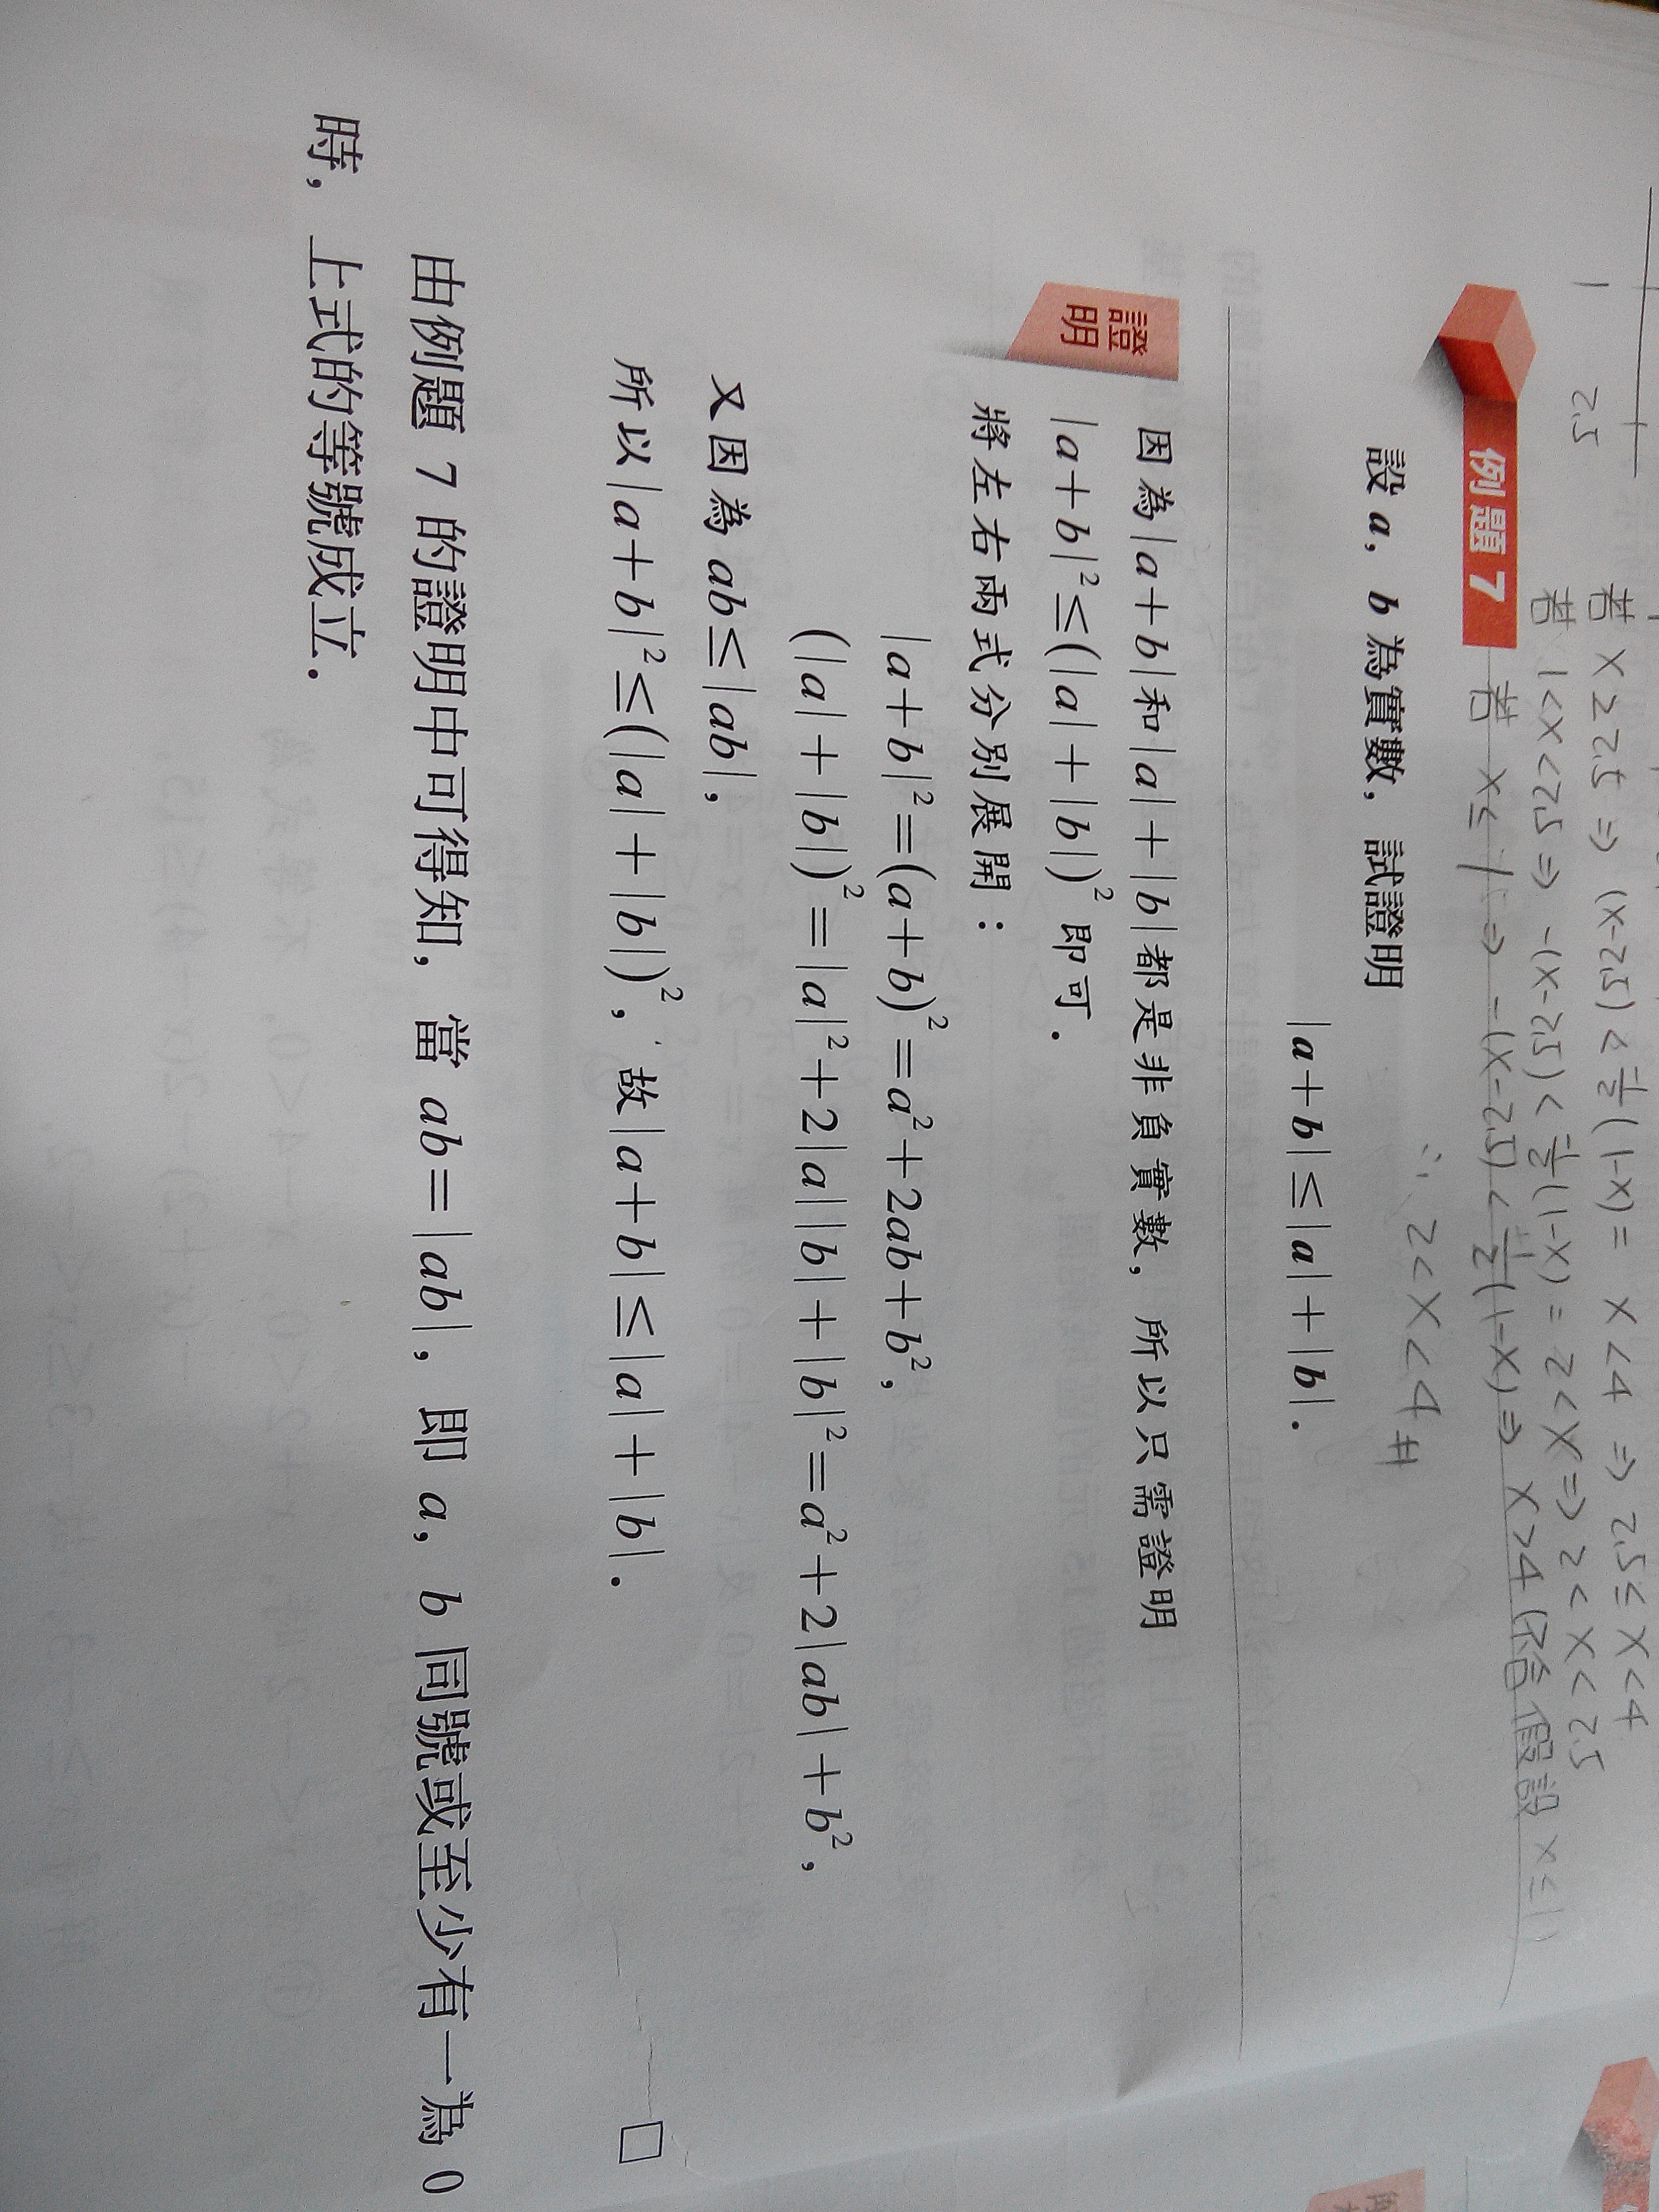 1 2.5
若 x≥2.5 ⇒ (x-2.5)<½(1-x) = x<4 ⇒ 2.5≤x<4
若 1<x<2.5 ⇒ -(x-2.5)<½(1-x) = 2<x ⇒ 2<x<2.5
例題 7 若 x≤1 ⇒ -(x-2.5)<½(1-x) ⇒ x>4 (不合假設 x≤1)
∴ 2<x<4 #
設 a, b 為實數, 試證明
|a+b|≤|a|+|b|.
證明
因為|a+b|和|a|+|b|都是非負實數, 所以只需證明
|a+b|²≤(|a|+|b|)² 即可.
將左右兩式分別展開:
|a+b|²=(a+b)²=a²+2ab+b²,
(|a|+|b|)²=|a|²+2|a||b|+|b|²=a²+2|ab|+b²,
又因為 ab≤|ab|,
所以|a+b|²≤(|a|+|b|)², 故|a+b|≤|a|+|b|. □
由例題 7 的證明中可得知, 當 ab=|ab|, 即 a, b 同號或至少有一為 0
時, 上式的等號成立.